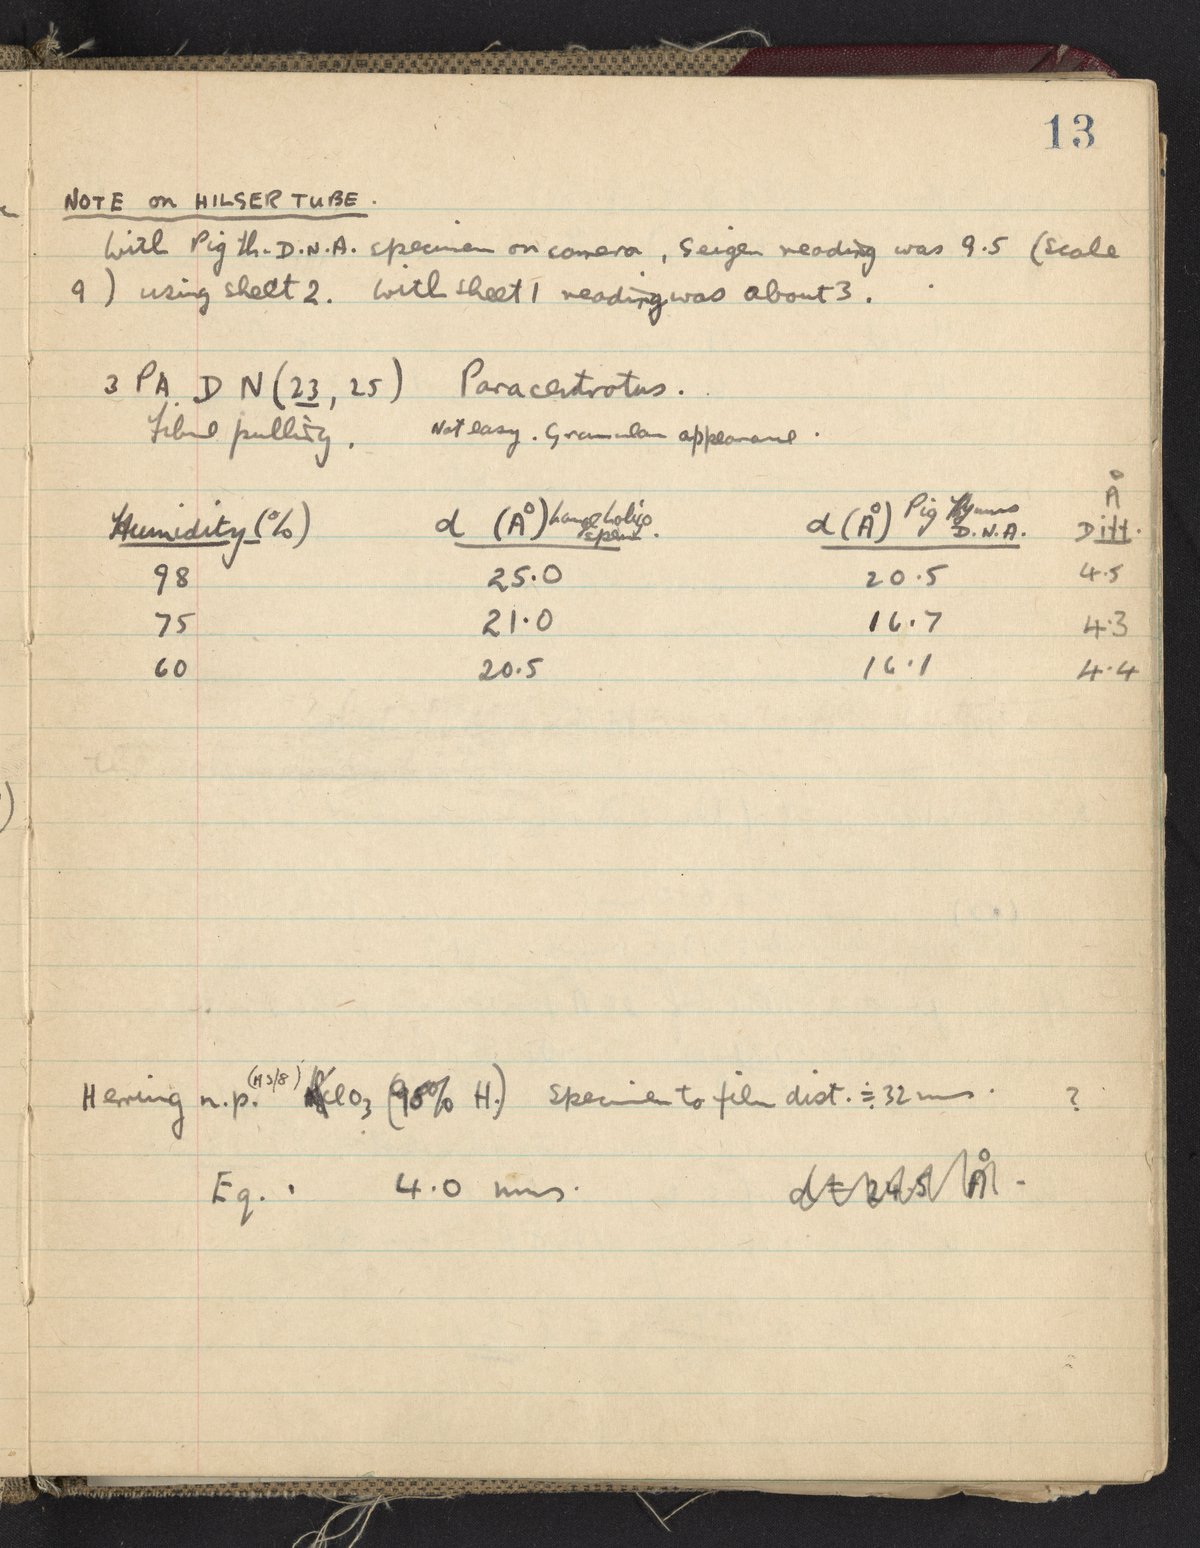 13
NOTE on HILGER TUBE.
With Pig th. D.N.A. specimen on camera, Geiger reading was 9.5 (scale
9) using shelt 2. With sheet 1 reading was about 3.
3 PA. D N (23, 25) Paracentrotus.
Fibre pulling. Not easy. Granular appearance.
Humidity (%) d (Å) spem. d (Å) Pig Thymus D.N.A. Å Diff.
98 25.0 20.5 4.5
75 21.0 16.7 4.3
60 20.5 16.1 4.4
Herring n.p. (HS/8) ClO3 (98% H.) Specimen to film dist. ≑ 32 mms. ?
Eq. 4.0 mms. d = 24.5 Å.